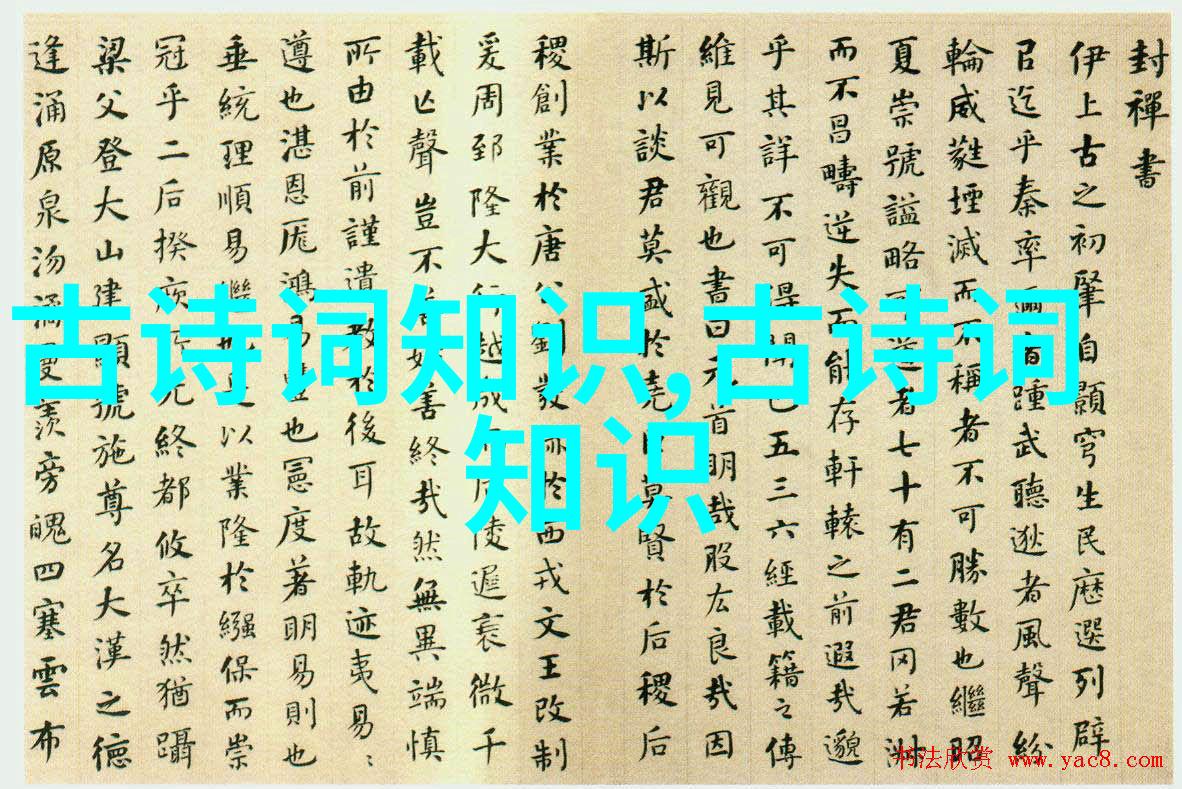 封禪書
伊上古之初肇自顥穹生民歷選列辟
㠯迄乎秦率邇者踵武聽逖者風聲紛
輪威蕤堙滅而不稱者不可勝數也繼昭
夏崇號謚略可道者七十有二君罔若淑
而不昌疇逆失而能存軒轅之前遐哉邈
乎其詳不可得聞已五三六經載籍之傳
維見可觀也書曰元首明哉股厷良哉因
斯以談君莫盛於堯臣莫賢於后稷后
稷創業於唐公劉發迹於西戎文王改制
爰周郅隆大行越成而后陵遲衰微千
載亡聲豈不善始善終哉然無異端慎
所由於前謹遺教於後耳故軌迹夷易〻
遵也湛恩厖鴻易豐也憲度著明易則也
垂統理順易繼也是以業隆於繈保而崇
冠乎二后揆厥所元終都攸卒然猶躡
梁父登大山建顯號施尊名大漢之德
逢涌原泉沕潏曼羨旁魄四塞雲布
古诗词知识,古诗词
知识
书法欣赏 www.yac8.com